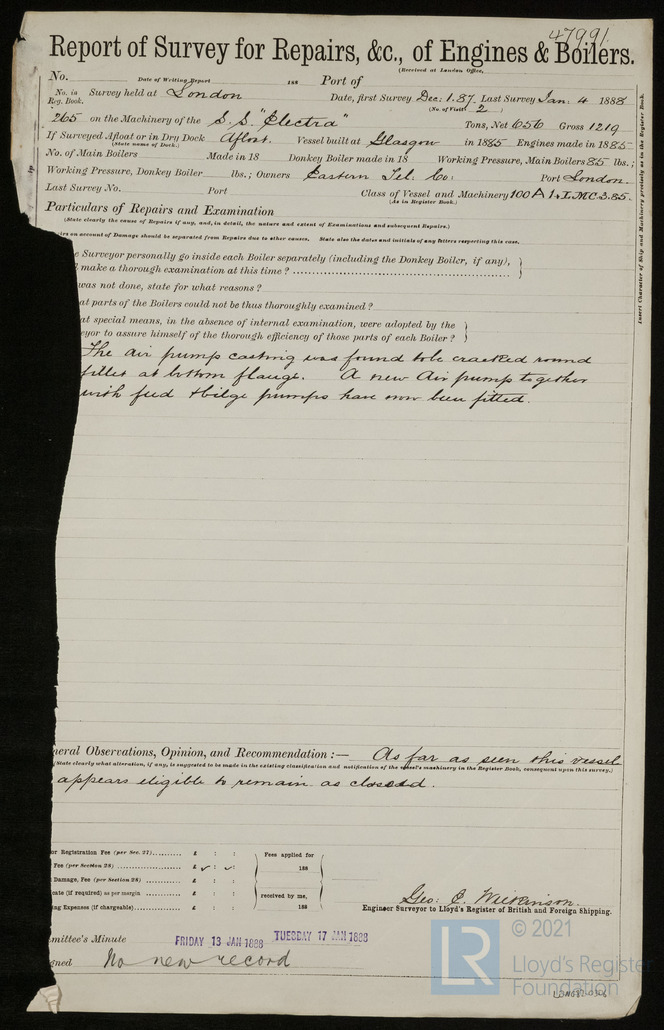 47991.
Report of Survey for Repairs, &c., of Engines & Boilers.
(Received at London Office,
No. Date of Writing Report 188 Port of
No. in Survey held at London Date, first Survey Dec: 1. 87. Last Survey Jan: 4 1888
Reg. Book. (No. of Visits 2 )
265 on the Machinery of the S.S. "Electra" Tons, Net 656 Gross 1219
If Surveyed Afloat or in Dry Dock Afloat. Vessel built at Glasgow in 1885 Engines made in 1885
(State name of Dock.)
No. of Main Boilers Made in 18 Donkey Boiler made in 18 Working Pressure, Main Boilers 85 lbs.;
Working Pressure, Donkey Boiler lbs.; Owners Eastern Tel. Co: Port London.
Last Survey No. Port Class of Vessel and Machinery 100 A 1. LMC 3.85.
(As in Register Book.)
Particulars of Repairs and Examination
(State clearly the cause of Repairs if any, and, in detail, the nature and extent of Examinations and subsequent Repairs.)
irs on account of Damage should be separated from Repairs due to other causes. State also the dates and initials of any letters respecting this case.
e Surveyor personally go inside each Boiler separately (including the Donkey Boiler, if any),
make a thorough examination at this time ?
was not done, state for what reasons ?
at parts of the Boilers could not be thus thoroughly examined ?
at special means, in the absence of internal examination, were adopted by the
eyor to assure himself of the thorough efficiency of those parts of each Boiler ?
The air pump casting was found to be cracked round
fillet at bottom flange. A new Air pump together
with feed & bilge pumps have now been fitted.
neral Observations, Opinion, and Recommendation :— As far as seen this vessel
(State clearly what alteration, if any, is suggested to be made in the existing classification and notification of the vessel's machinery in the Register Book, consequent upon this survey.)
appears eligible to remain as classed.
or Registration Fee (per Sec. 27) £ : : Fees applied for
Fee (per Section 28) £ : : 188
Damage, Fee (per Section 28) £ : :
cate (if required) as per margin £ : : received by me,
ng Expenses (if chargeable) £ : : 188
Geo: C. Wilkinson.
Engineer Surveyor to Lloyd's Register of British and Foreign Shipping.
mmittee's Minute FRIDAY 13 JAN 1888 TUESDAY 17 JAN 1888
gned No new record
Insert Character of Ship and Machinery precisely as in the Register Book.
LR © 2021
Lloyd's Register
Foundation